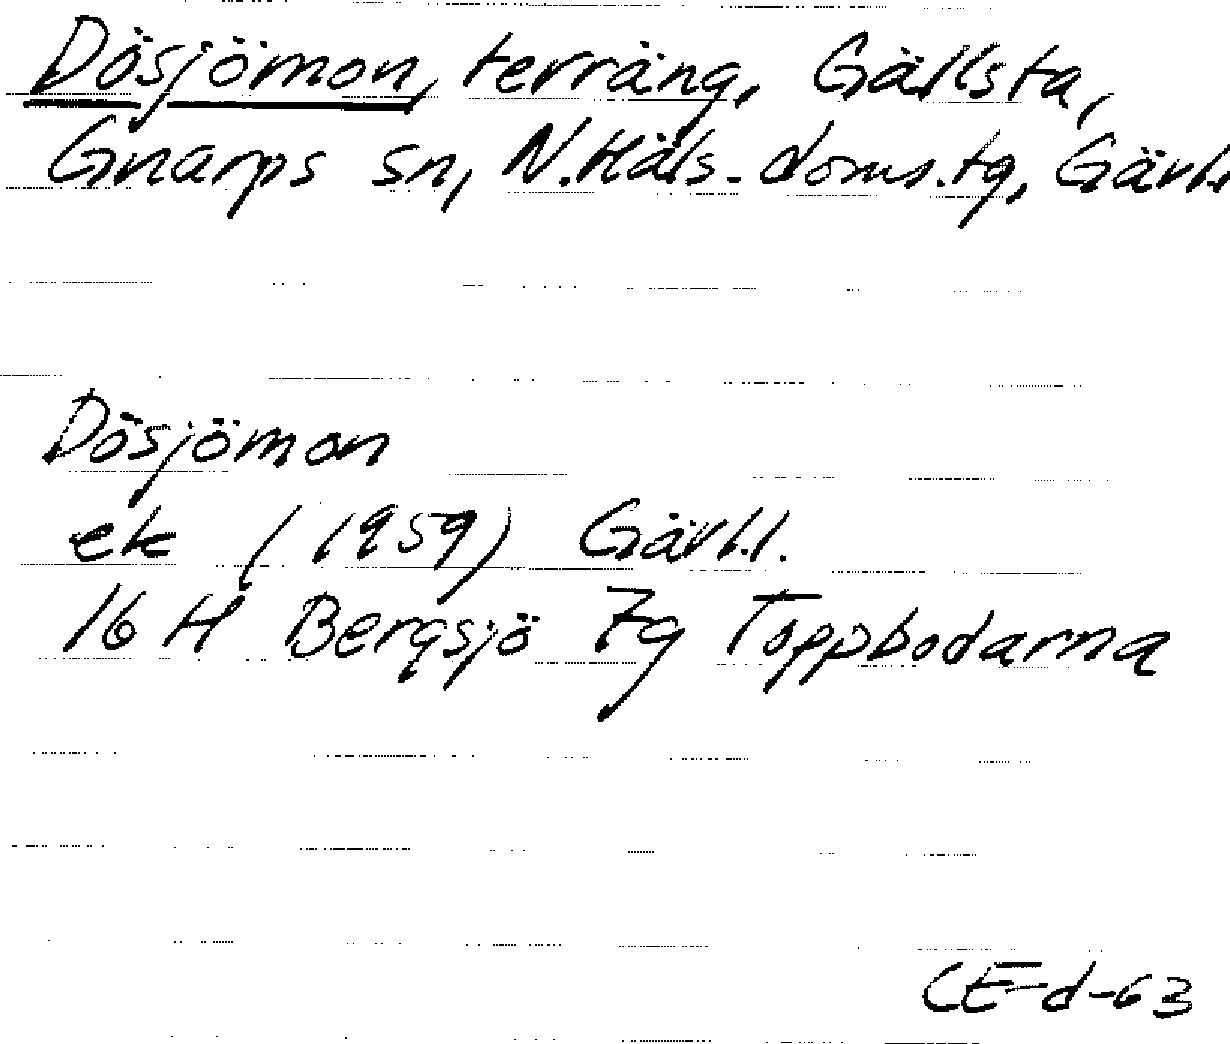 Dösjömon, terräng, Gällsta,
Gnarps sn, N.Häls. doms.tg, Gävl.l
Dösjömon
ek (1959) Gävl.l.
16 H Bergsjö 7g Toppbodarna
CE-d-63